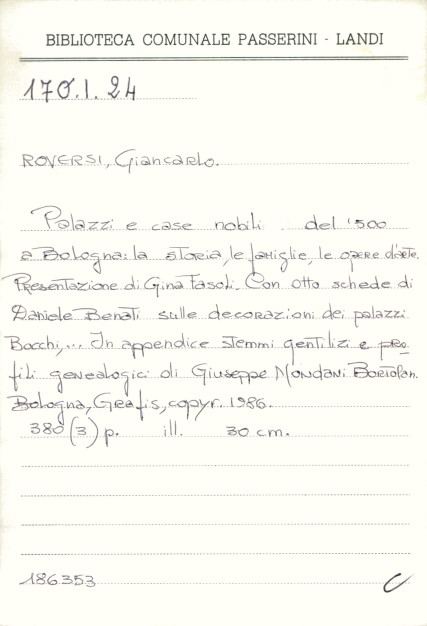 BIBLIOTECA COMUNALE PASSERINI - LANDI
170.I.24
ROVERSI, Giancarlo.
Palazzi e case nobili del '500
a Bologna: la storia, le famiglie, le opere d'arte.
Presentazione di Gina Fasoli. Con otto schede di
Daniele Benati sulle decorazioni dei palazzi
Bocchi,... In appendice stemmi gentilizi e pro-
fili genealogici di Giuseppe Mondani Bortolan.
Bologna, Grafis, copyr. 1986.
380 (3) p. ill. 30 cm.
186353 C